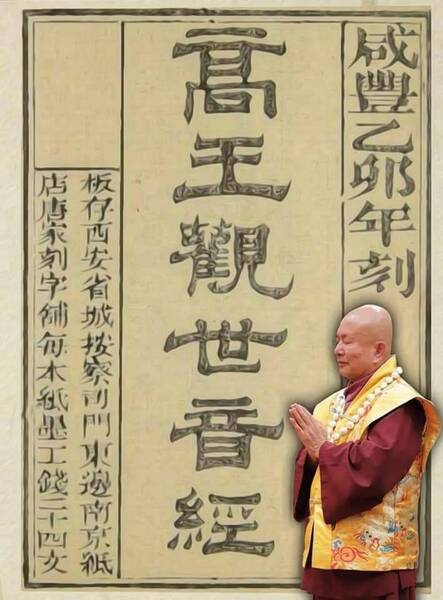 咸豐乙卯年刻
高王觀世音經
板存西安省城按察司門東邊南京紙
店唐家刻字鋪每本紙墨工錢二十四文